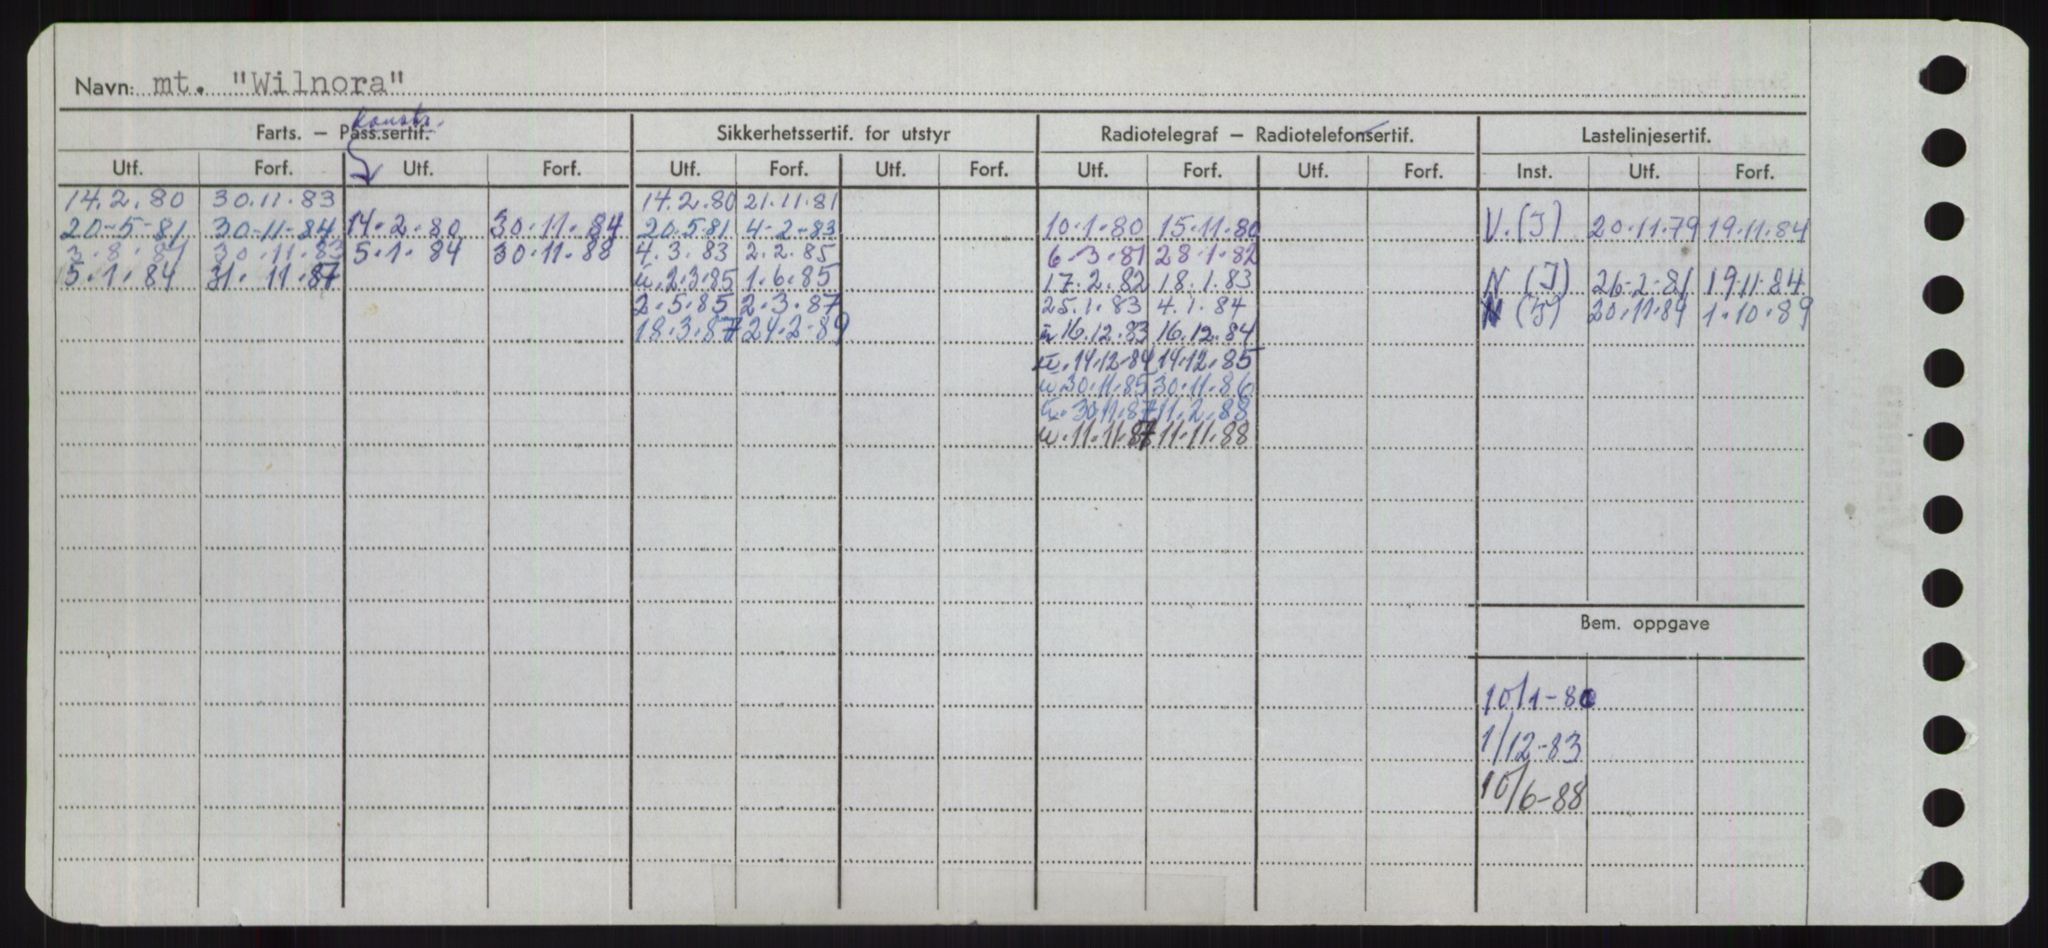 Navn: mt. "Wilnora"
konstr.
Farts. – Pass.sertif. Sikkerhetssertif. for utstyr Radiotelegraf – Radiotelefonsertif. Lastelinjesertif.
Utf. Forf. Utf. Forf. Utf. Forf. Utf. Forf. Utf. Forf. Utf. Forf. Inst. Utf. Forf.
14.2.80 30.11.83 14.2.80 21.11.81
20-5-81 30-11-84 14.2.80 30.11.84 20.5.81 4-2-83 10.1.80 15.11.80 V.(I) 20.11.79 19.11.84
3.8.81 30.11.83 5.1.84 30.11.88 4.3.83 2.2.85 6.3.81 28.1.82
5.1.84 31.11.87 u.2.3.85 1.6.85 17.2.82 18.1.83 N (I) 26-2-81 19.11.84
2.5.85 2.3.87 25.1.83 4.1.84 N (I) 20.11.84 1.10.89
18.3.87 24.2-89 u.16.12.83 16.12.84
u.14.12.84 14.12.85
u.30.11.85 30.11.86
u.30.11.87 11.2.88
u.11.11.87 11.11.88
Bem. oppgave
10/1-80
1/12-83
10/6-88